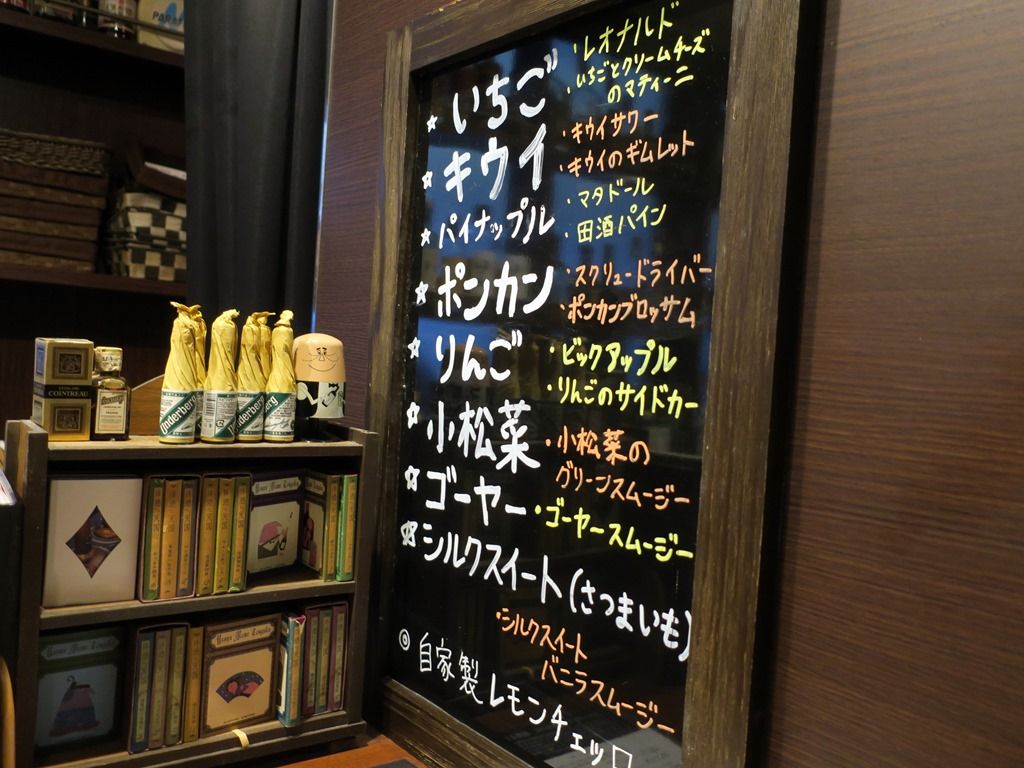 ・レオナルド
☆いちご ・いちごとクリームチーズ
のマティーニ
☆キウイ ・キウイサワー
・キウイのギムレット
☆パイナップル ・マタドール
・田酒パイン
☆ポンカン ・スクリュードライバー
・ポンカンブロッサム
☆りんご ・ビックアップル
・りんごのサイドカー
☆小松菜 ・小松菜の
グリーンスムージー
☆ゴーヤー ・ゴーヤースムージー
☆シルクスイート(さつまいも)
・シルクスイート
バニラスムージー
◎自家製レモンチェッロ
COINTREAU
Underberg
Underberg
Underberg